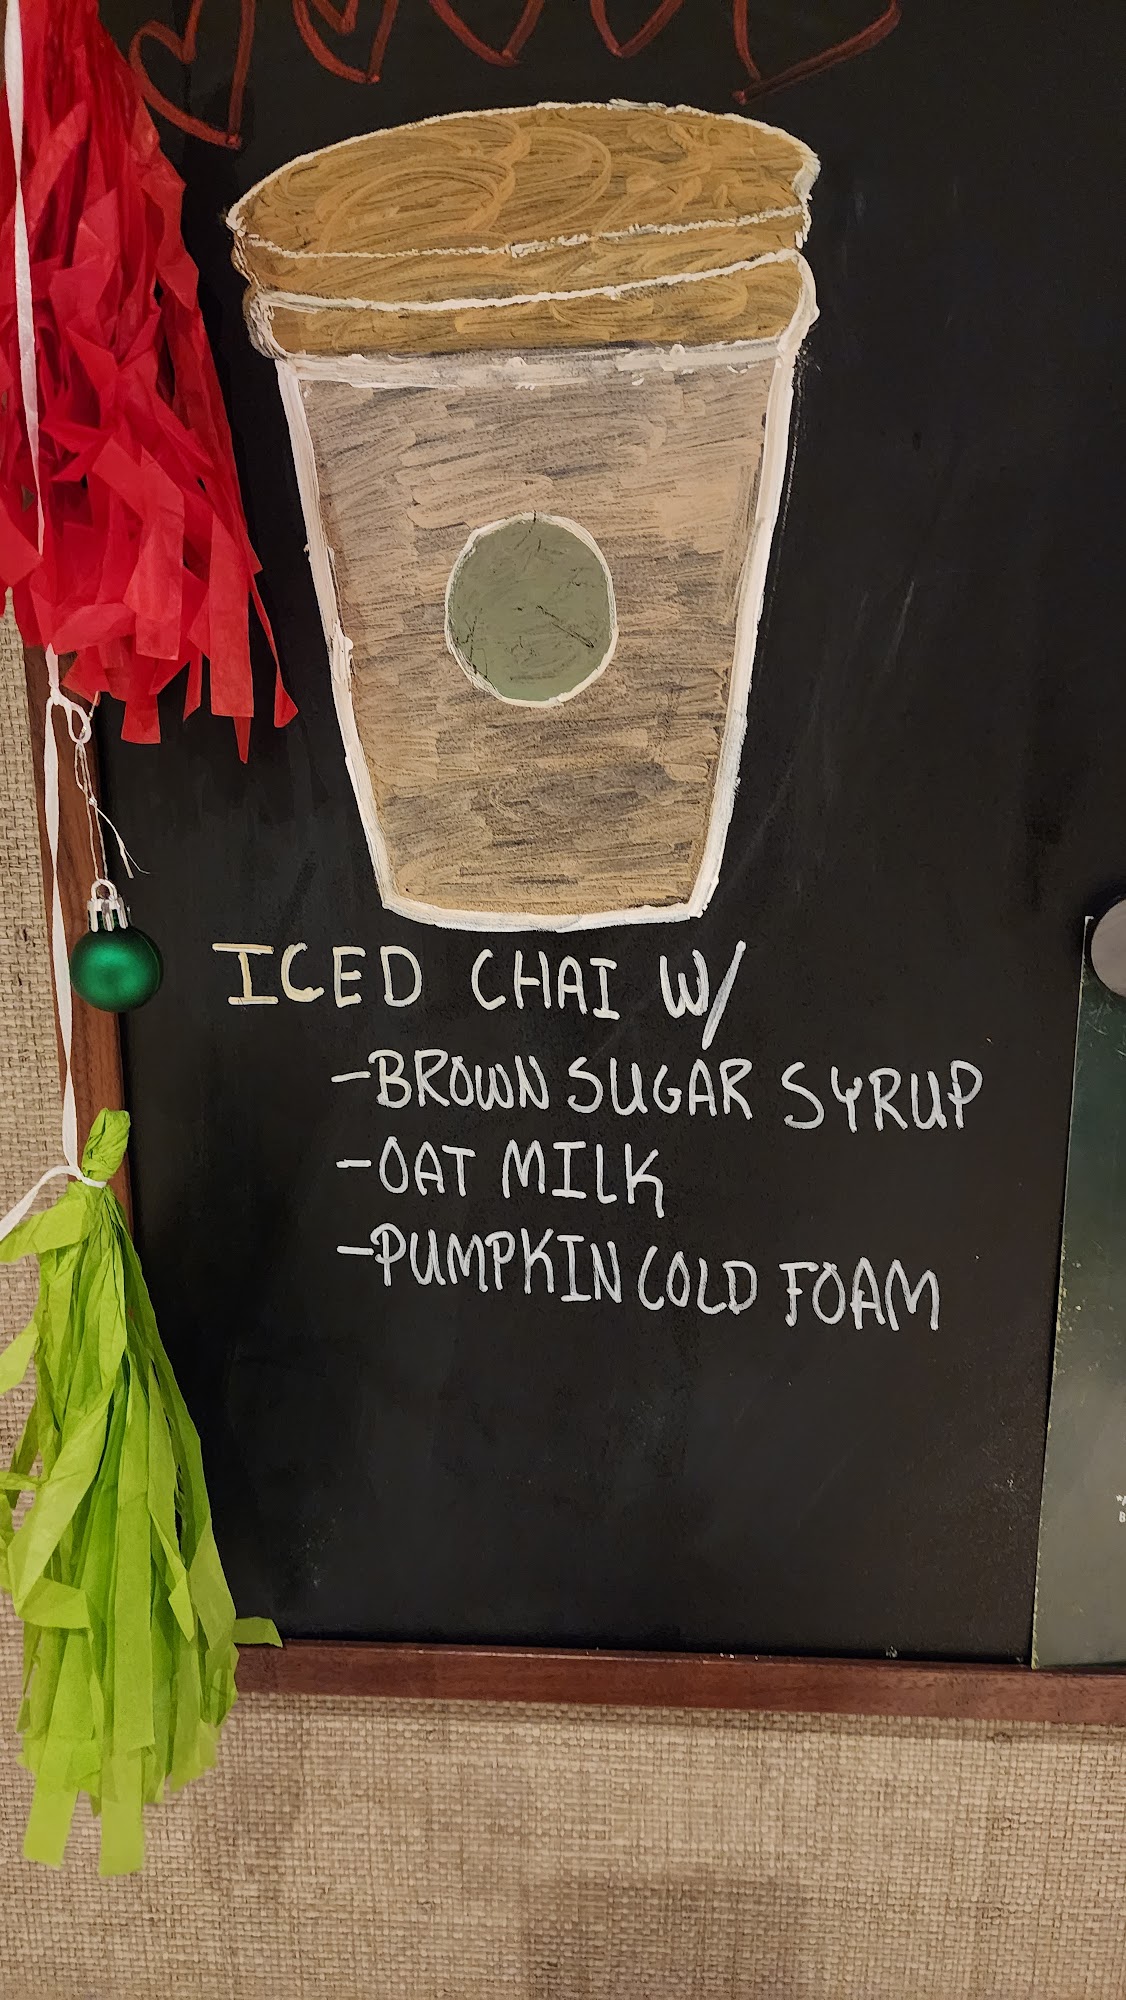 ICED CHAI W/
-BROWN SUGAR SYRUP
-OAT MILK
-PUMPKIN COLD FOAM